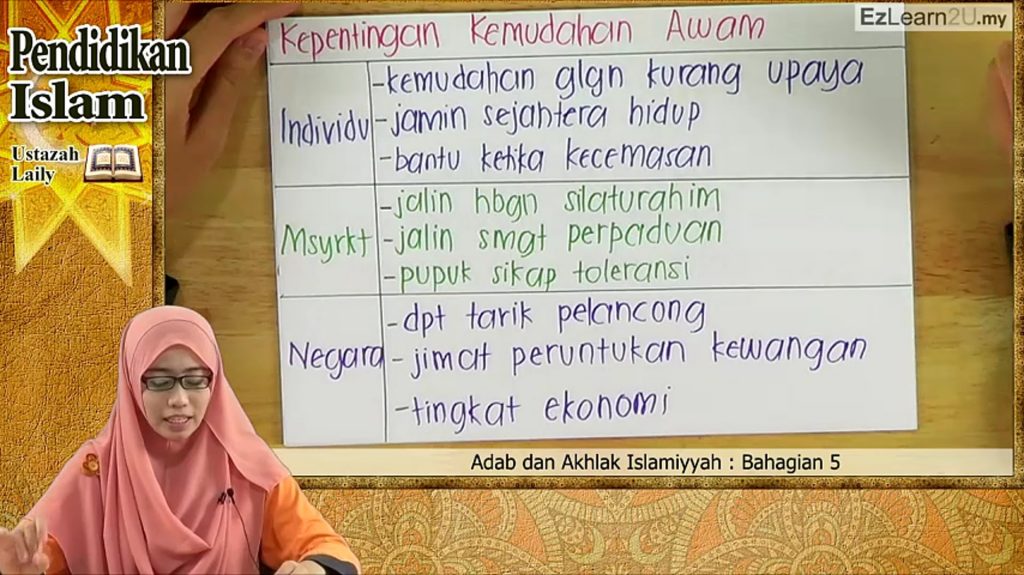 EzLearn2U.my
Pendidikan
Islam
Ustazah
Laily
Kepentingan Kemudahan Awam
Individu
-kemudahan glgn kurang upaya
-jamin sejahtera hidup
-bantu ketika kecemasan
Msyrkt
-jalin hbgn silaturahim
-jalin smgt perpaduan
-pupuk sikap toleransi
Negara
-dpt tarik pelancong
-jimat peruntukan kewangan
-tingkat ekonomi
Adab dan Akhlak Islamiyyah : Bahagian 5